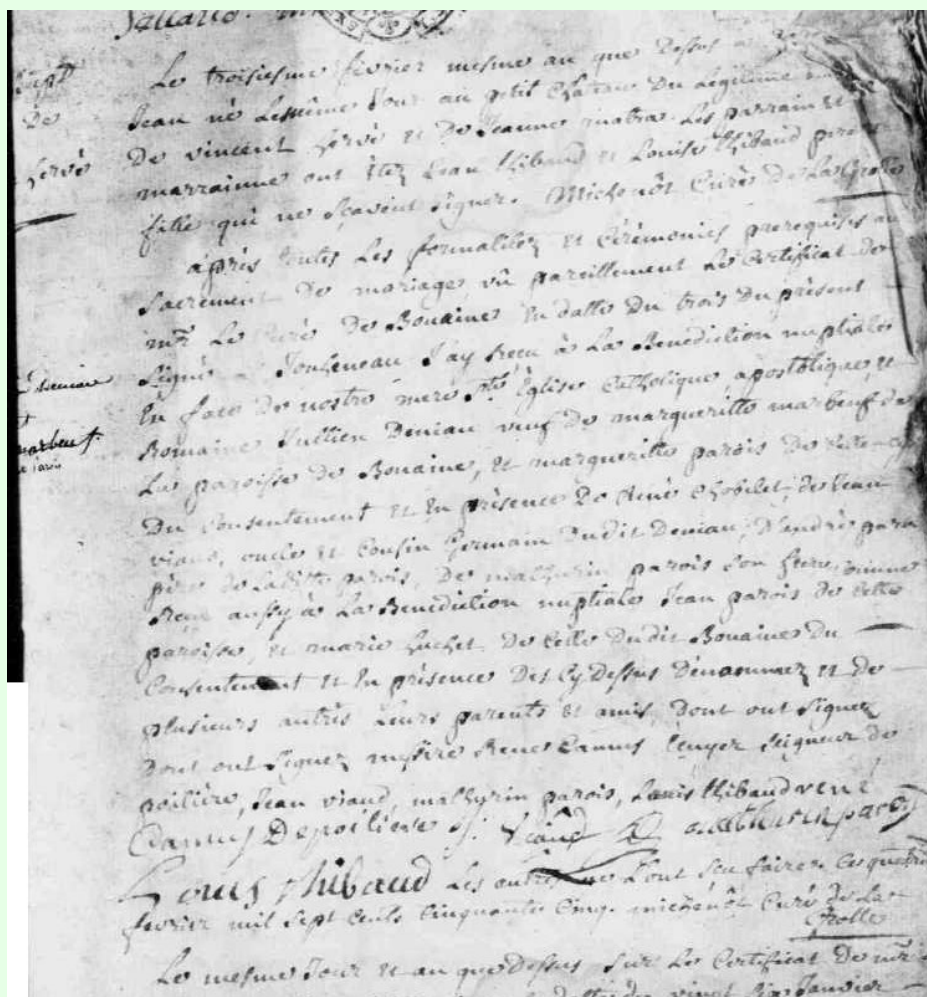 Le troisiesme fevrier mesme an que Dessus a
Jean né le mesme Jour au petit Chateau Du Legitime
De vincent hervé et De Jeanne matra. Les parrain et
hervé
marrainne ont étez Jean thibaud et Louise thibaud
fille qui ne scavent signer. Michenôt Curé De La Grolle
après toutes Les formalitez et Cérémonies prerequises au
Sacrement De mariage, vû pareillement Le Certificat de
mr Le Curé De Bouaine En datte Du trois Du présent
Signé Joulneau J'ay Receu à La Benediction nuptiale
En face De nostre mere Ste Eglise Catholique, apostolique, et
Romaine Jullien Deniau veuf de margueritte marbeuf de
La paroisse de Bouaine, et margueritte parois De Cette
Du Consentement et En présence De René Chobelet, de Jean
viaud, oncle et Cousin Germain Dudit Deniau, D'andré
père de Laditte parois, De mathurin parois son frere, comme
Receu aussy à La Benediction nuptiale Jean parois de Cette
paroisse, et marie huchet De Celle Dudit Bouaine Du
Consentement et En présence Des Cy Dessus Dénommez et de
plusieurs autres Leurs parents et amis, Dont ont Signez
Dont ont Signez messire Rene Camus Ecuyer Seigneur de
poiliere, Jean viaud, mathurin parois, Louis thibaud
Camus Depoiliere J. Viaud mathurin parois
Louis thibaud Les autres ne L'ont sçu faire. Ce quatre
fevrier mil Sept Cents Cinquante Cinq. michenôt Curé de La
Grolle
Le mesme Jour et an que Dessus Sur Le Certificat De mr
vingt six Janvier